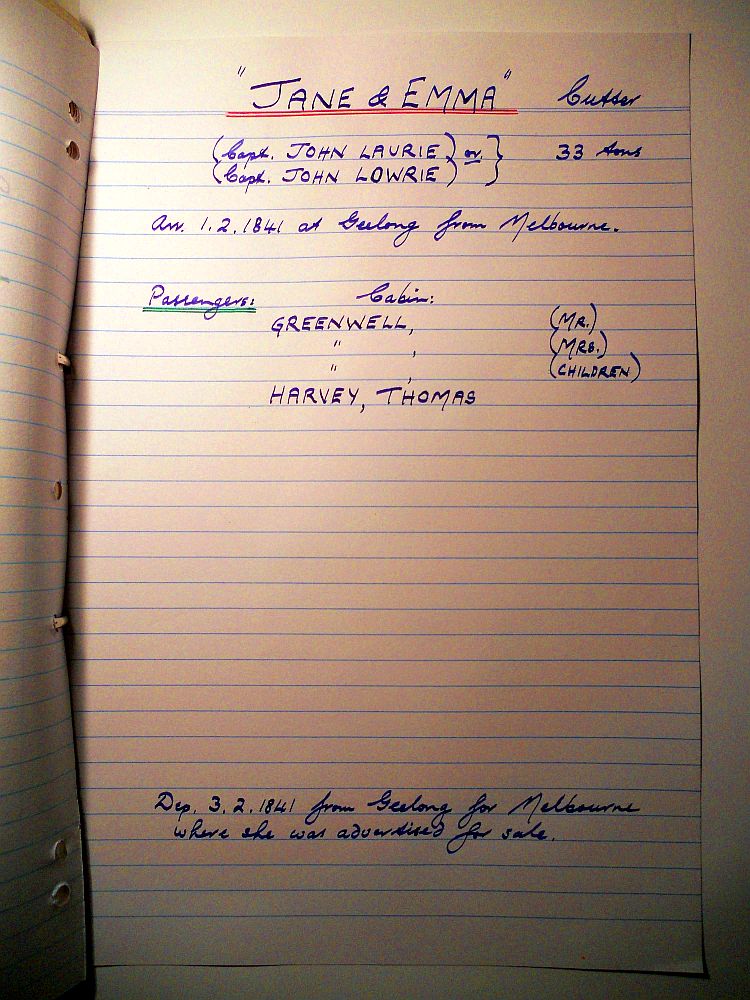 "JANE & EMMA" Cutter
(Capt. JOHN LAURIE) or } 33 tons
(Capt. JOHN LOWRIE) }
Arr. 1.2.1841 at Geelong from Melbourne.
Passengers: Cabin:
GREENWELL, (MR.)
" , (MRS.)
" , (CHILDREN)
HARVEY, THOMAS
Dep. 3.2.1841 from Geelong for Melbourne
where she was advertised for sale.